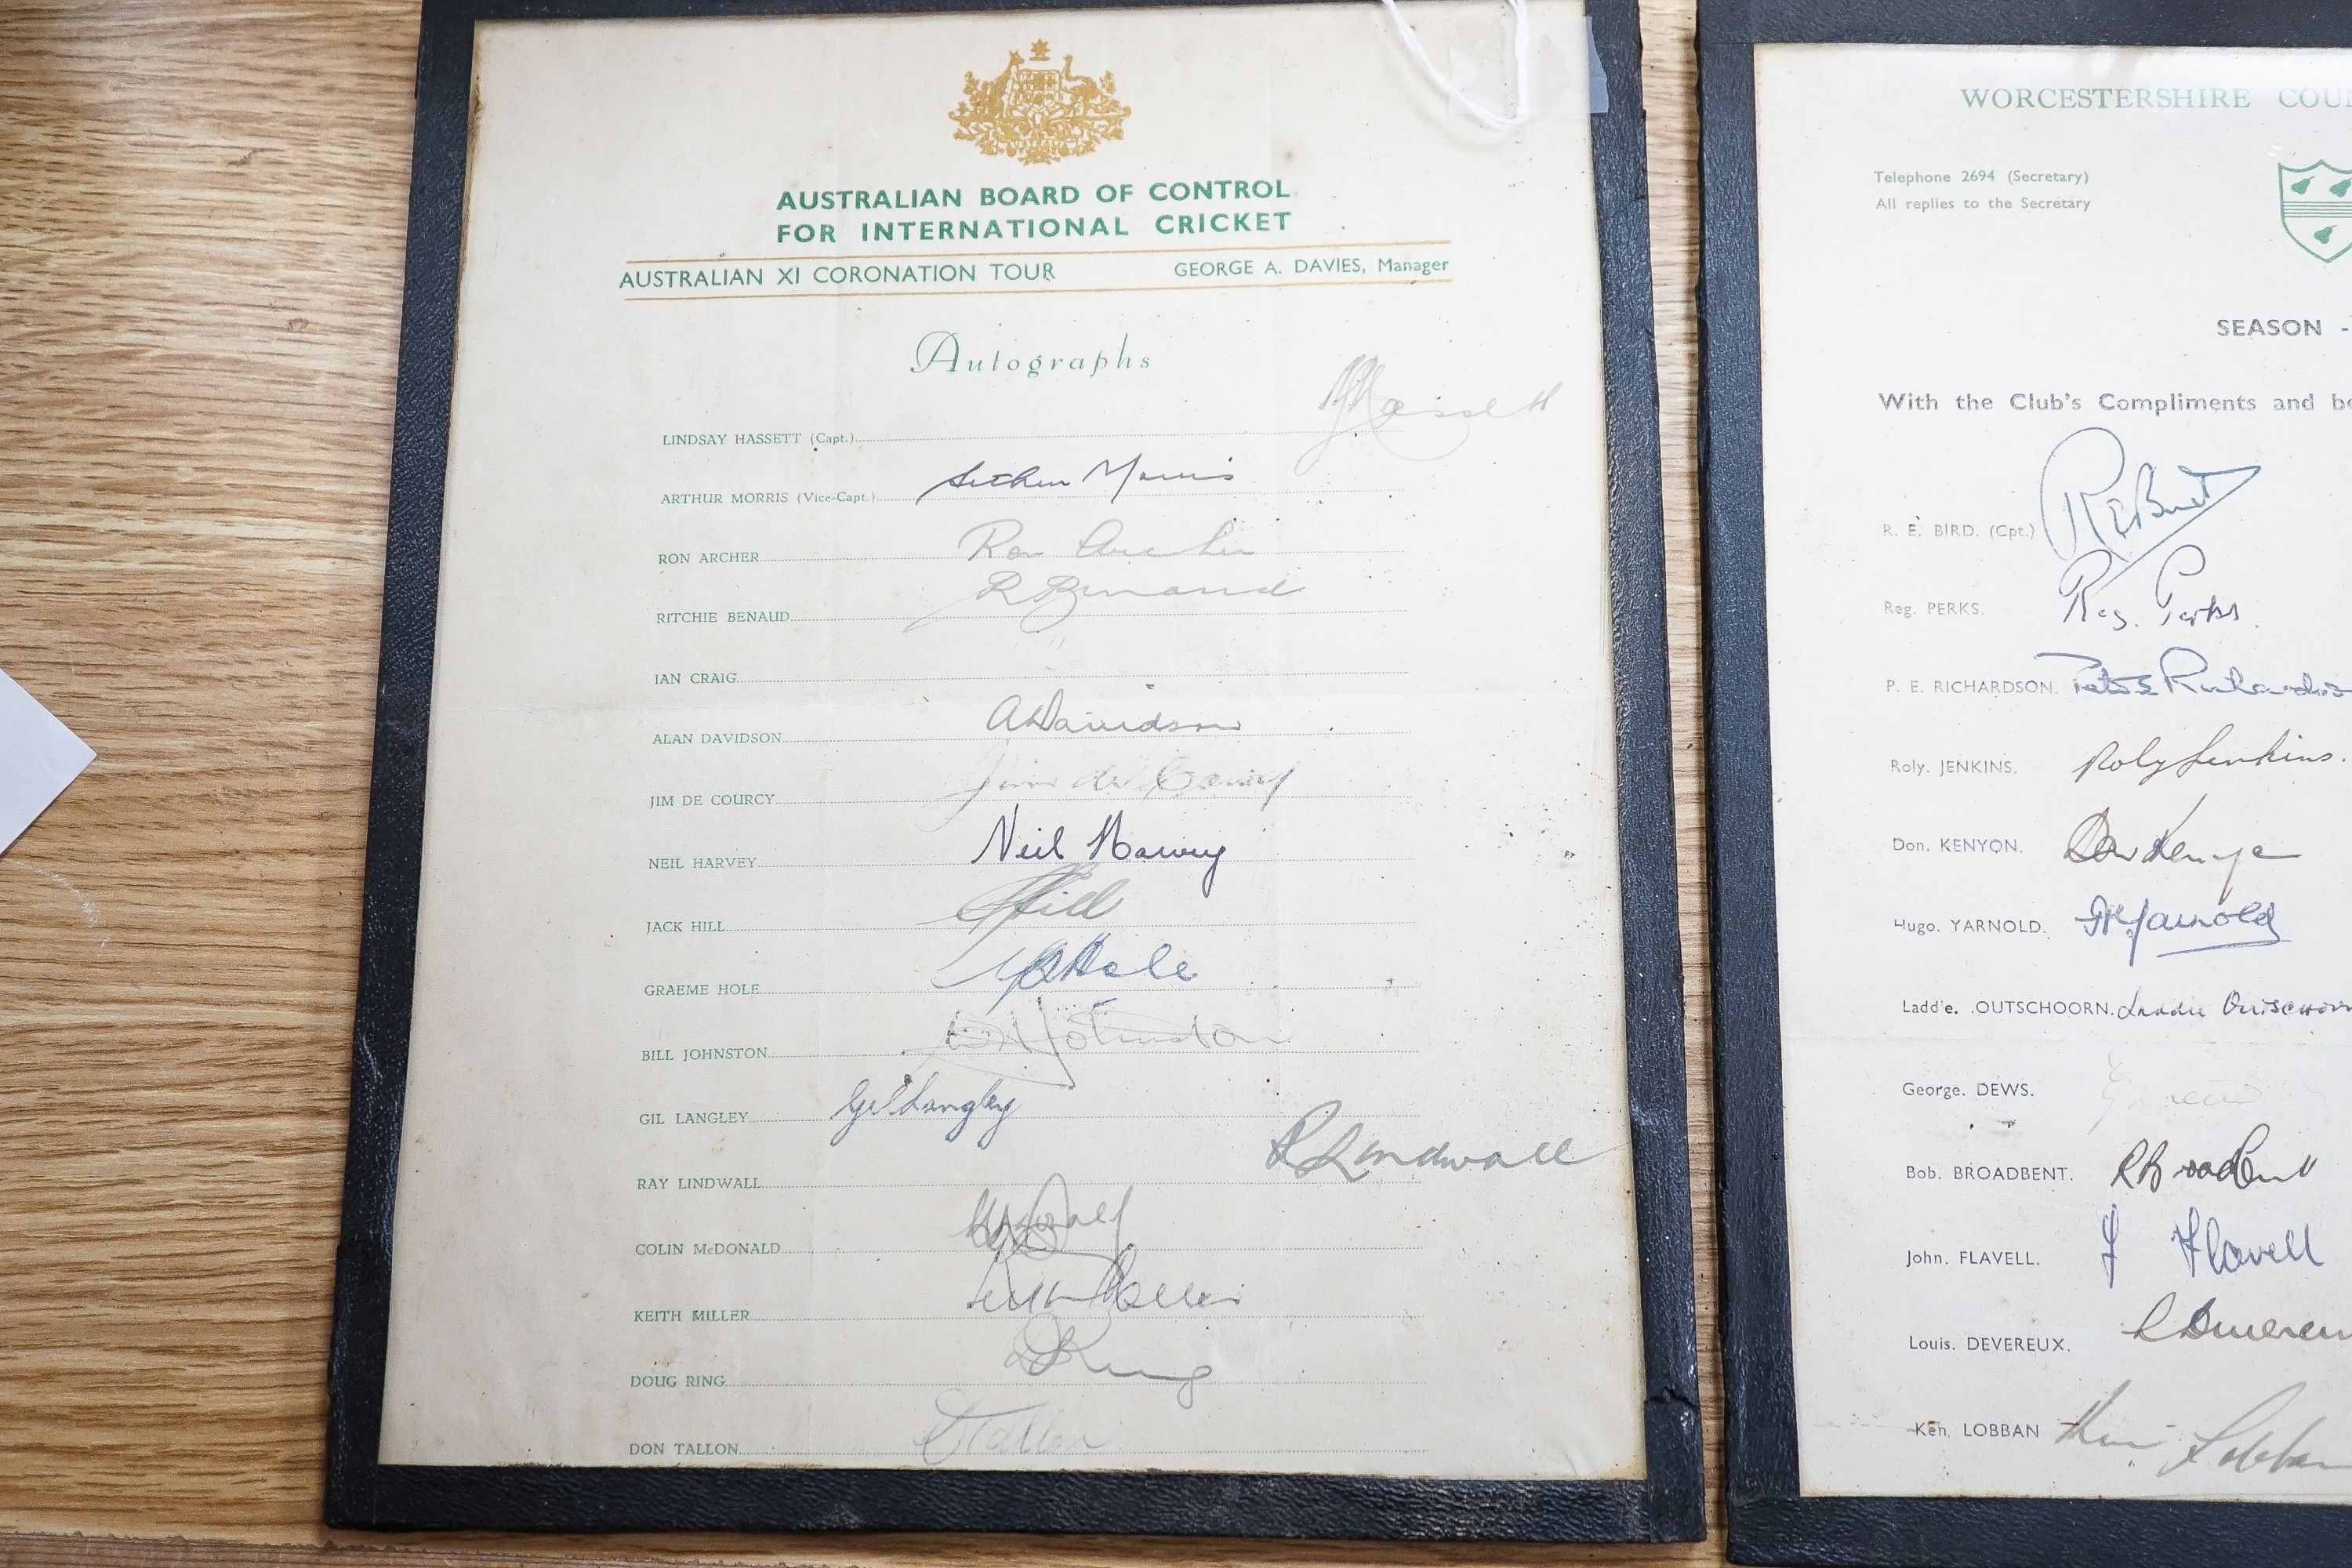 AUSTRALIAN BOARD OF CONTROL
FOR INTERNATIONAL CRICKET
AUSTRALIAN XI CORONATION TOUR GEORGE A. DAVIES, Manager
Autographs
LINDSAY HASSETT (Capt.) Hassett
ARTHUR MORRIS (Vice-Capt.) Arthur Morris
RON ARCHER Ron Archer
RITCHIE BENAUD R Benaud
IAN CRAIG
ALAN DAVIDSON A Davidson
JIM DE COURCY Jim de Courcy
NEIL HARVEY Neil Harvey
JACK HILL Hill
GRAEME HOLE Hole
BILL JOHNSTON Johnston
GIL LANGLEY Gil Langley
RAY LINDWALL R Lindwall
COLIN McDONALD
KEITH MILLER Keith Miller
DOUG RING D Ring
DON TALLON D Tallon
WORCESTERSHIRE COU
Telephone 2694 (Secretary)
All replies to the Secretary
SEASON -
With the Club's Compliments and be
R. E. BIRD. (Cpt.) R E Bird
Reg. PERKS. Reg. Perks.
P. E. RICHARDSON. Peter E Richardson
Roly. JENKINS. Roly Jenkins.
Don. KENYON. Don Kenyon
Hugo. YARNOLD. H Yarnold
Laddie. OUTSCHOORN. Laddie Outschoorn
George. DEWS.
Bob. BROADBENT. R Broadbent
John. FLAVELL. J Flavell
Louis. DEVEREUX. L Devereux
Ken. LOBBAN Ken Lobban